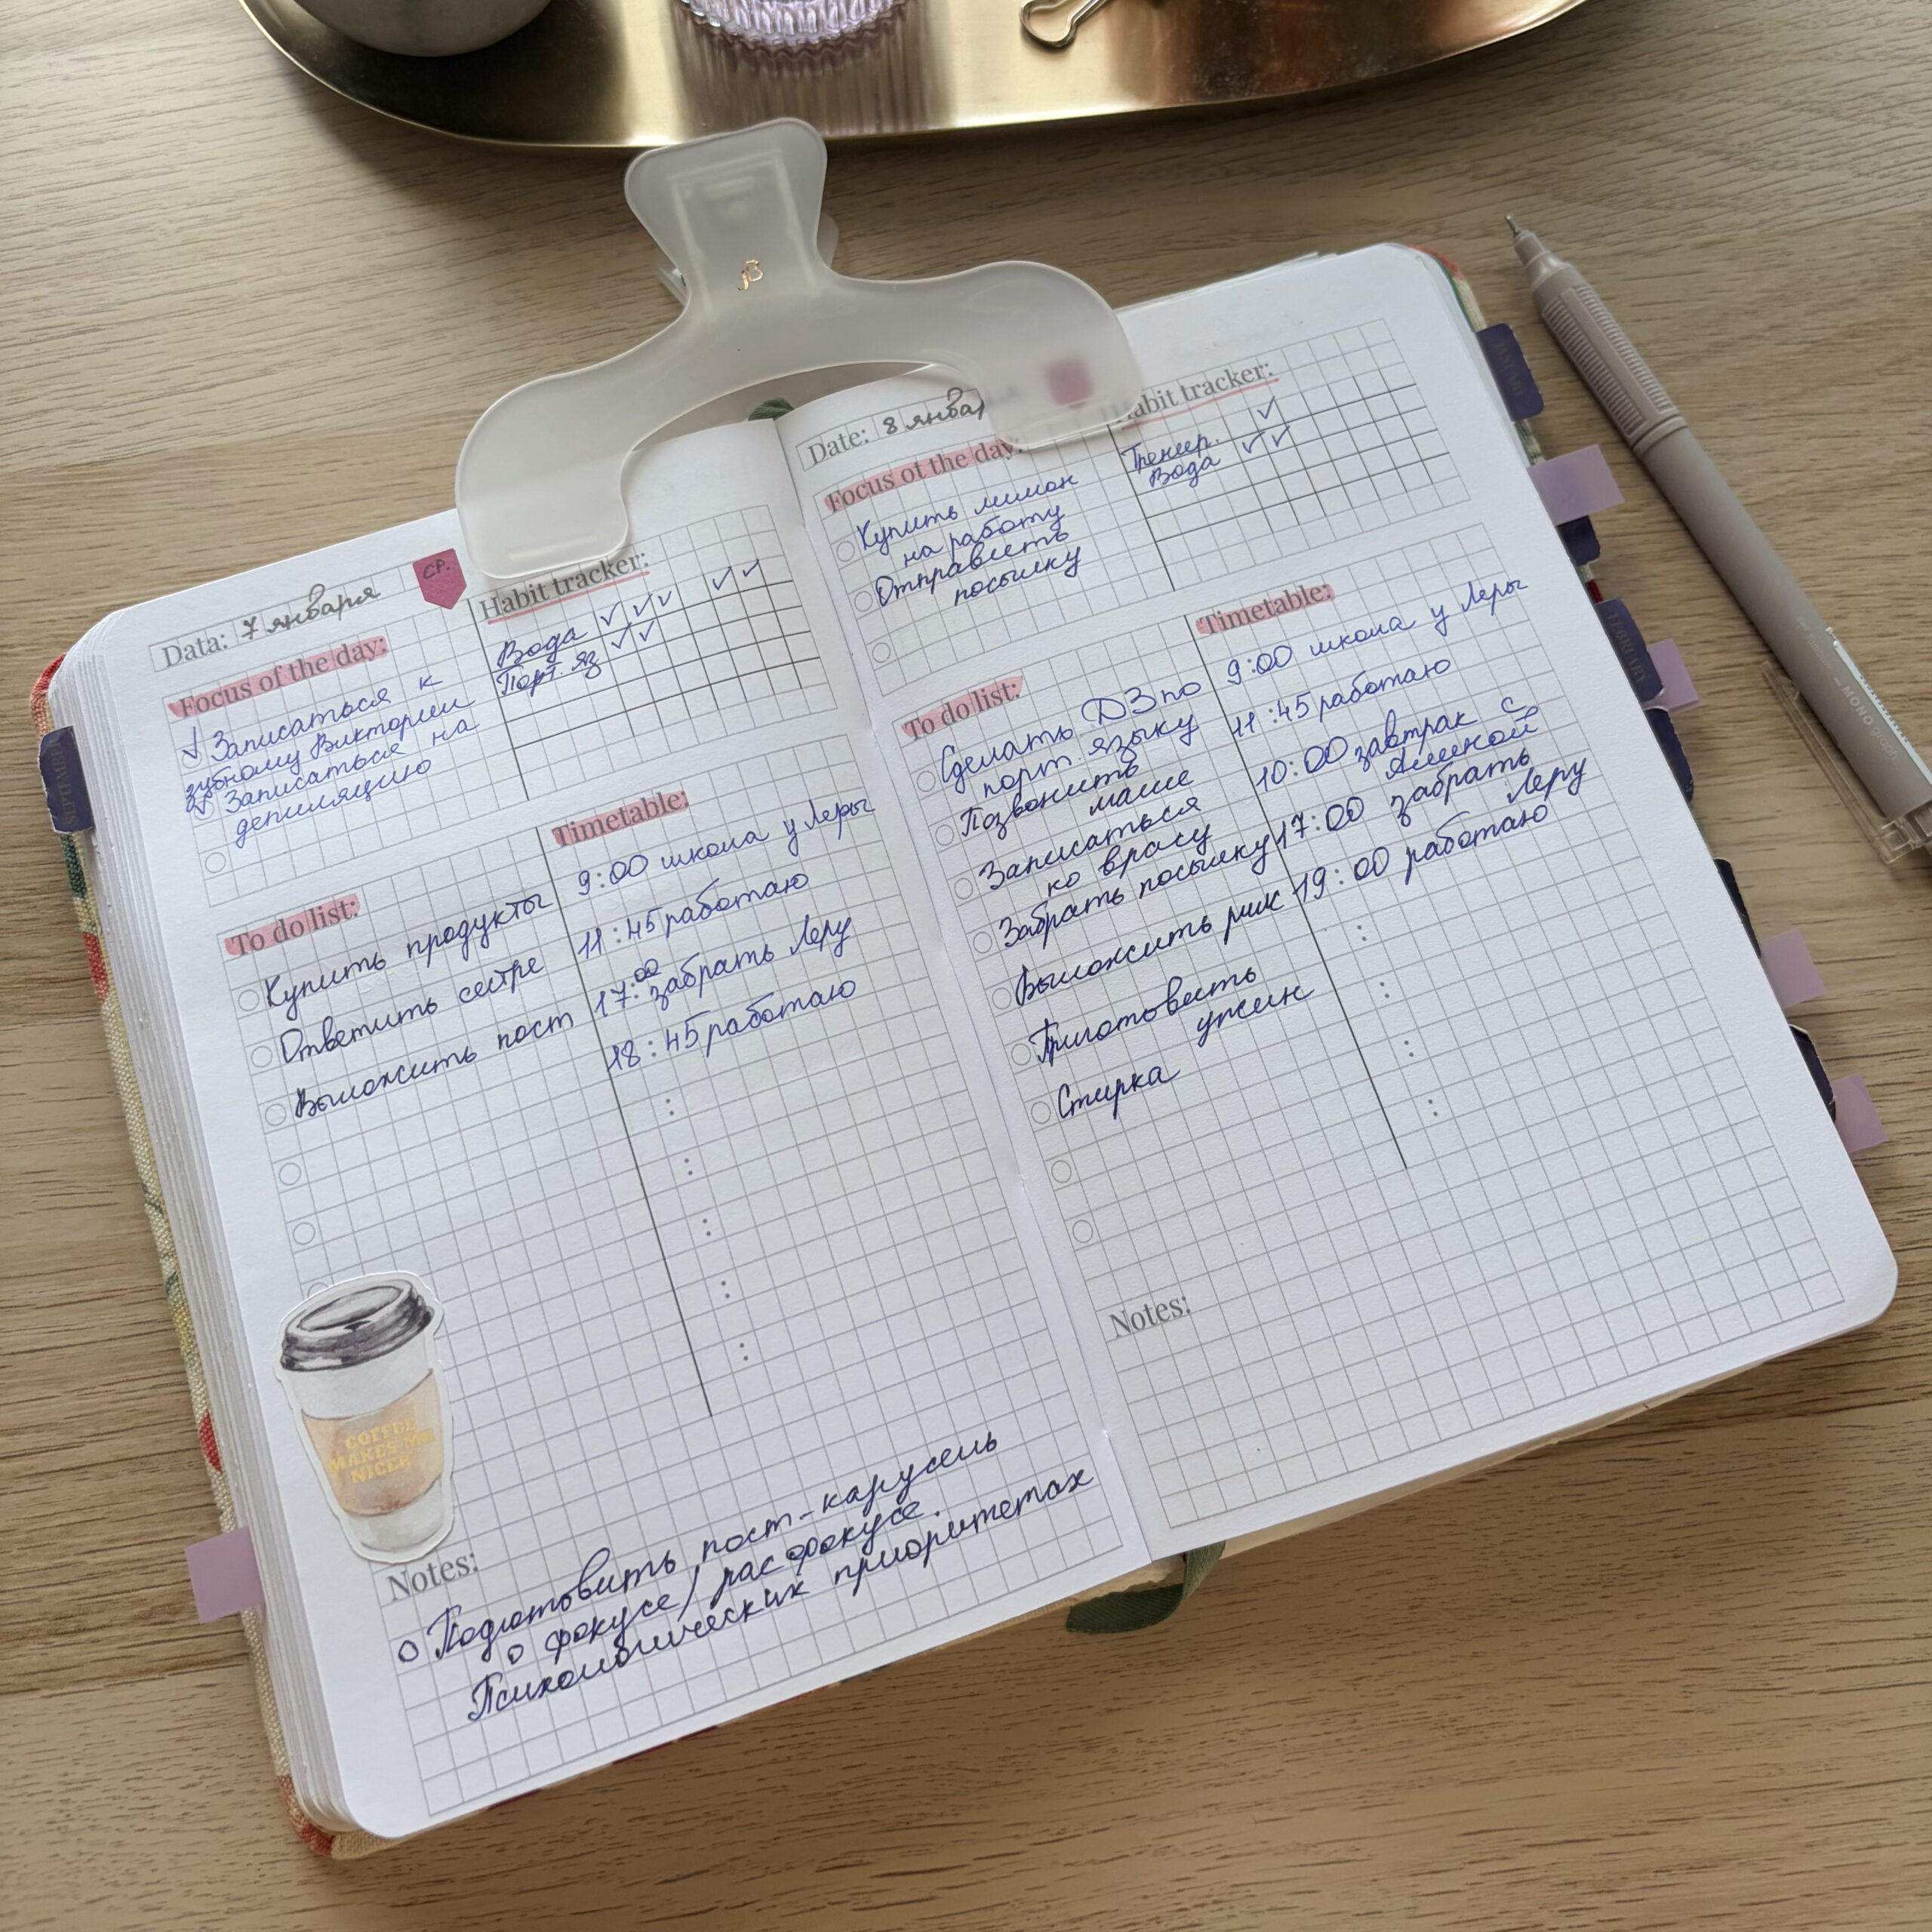 Data: 7 января
СР.
Focus of the day:
Записаться к
зубному Виктории
Записаться на
депиляцию
Habit tracker:
Вода
Порт. яз
To do list:
Купить продукты
Ответить сестре
Выложить пост
Timetable:
9:00 школа у Леры
11:45 работаю
17:00 забрать Леру
18:45 работаю
COFFEE
MAKES ME
NICER
Notes:
Подготовить пост-карусель
о фокусе/расфокусе.
Психологических приоритетах
Date: 8 январ
Focus of the day:
Купить лимон
на работу
Отправить
посылку
Habit tracker:
Тренир.
Вода
To do list:
Сделать ДЗ по
порт. языку
Позвонить
маме
Записаться
ко врачу
Забрать посылку
Выложить рилс
Приготовить
ужин
Стирка
Timetable:
9:00 школа у Леры
11:45 работаю
10:00 завтрак с
Алиной
17:00 забрать
Леру
19:00 работаю
Notes:
MONO graph